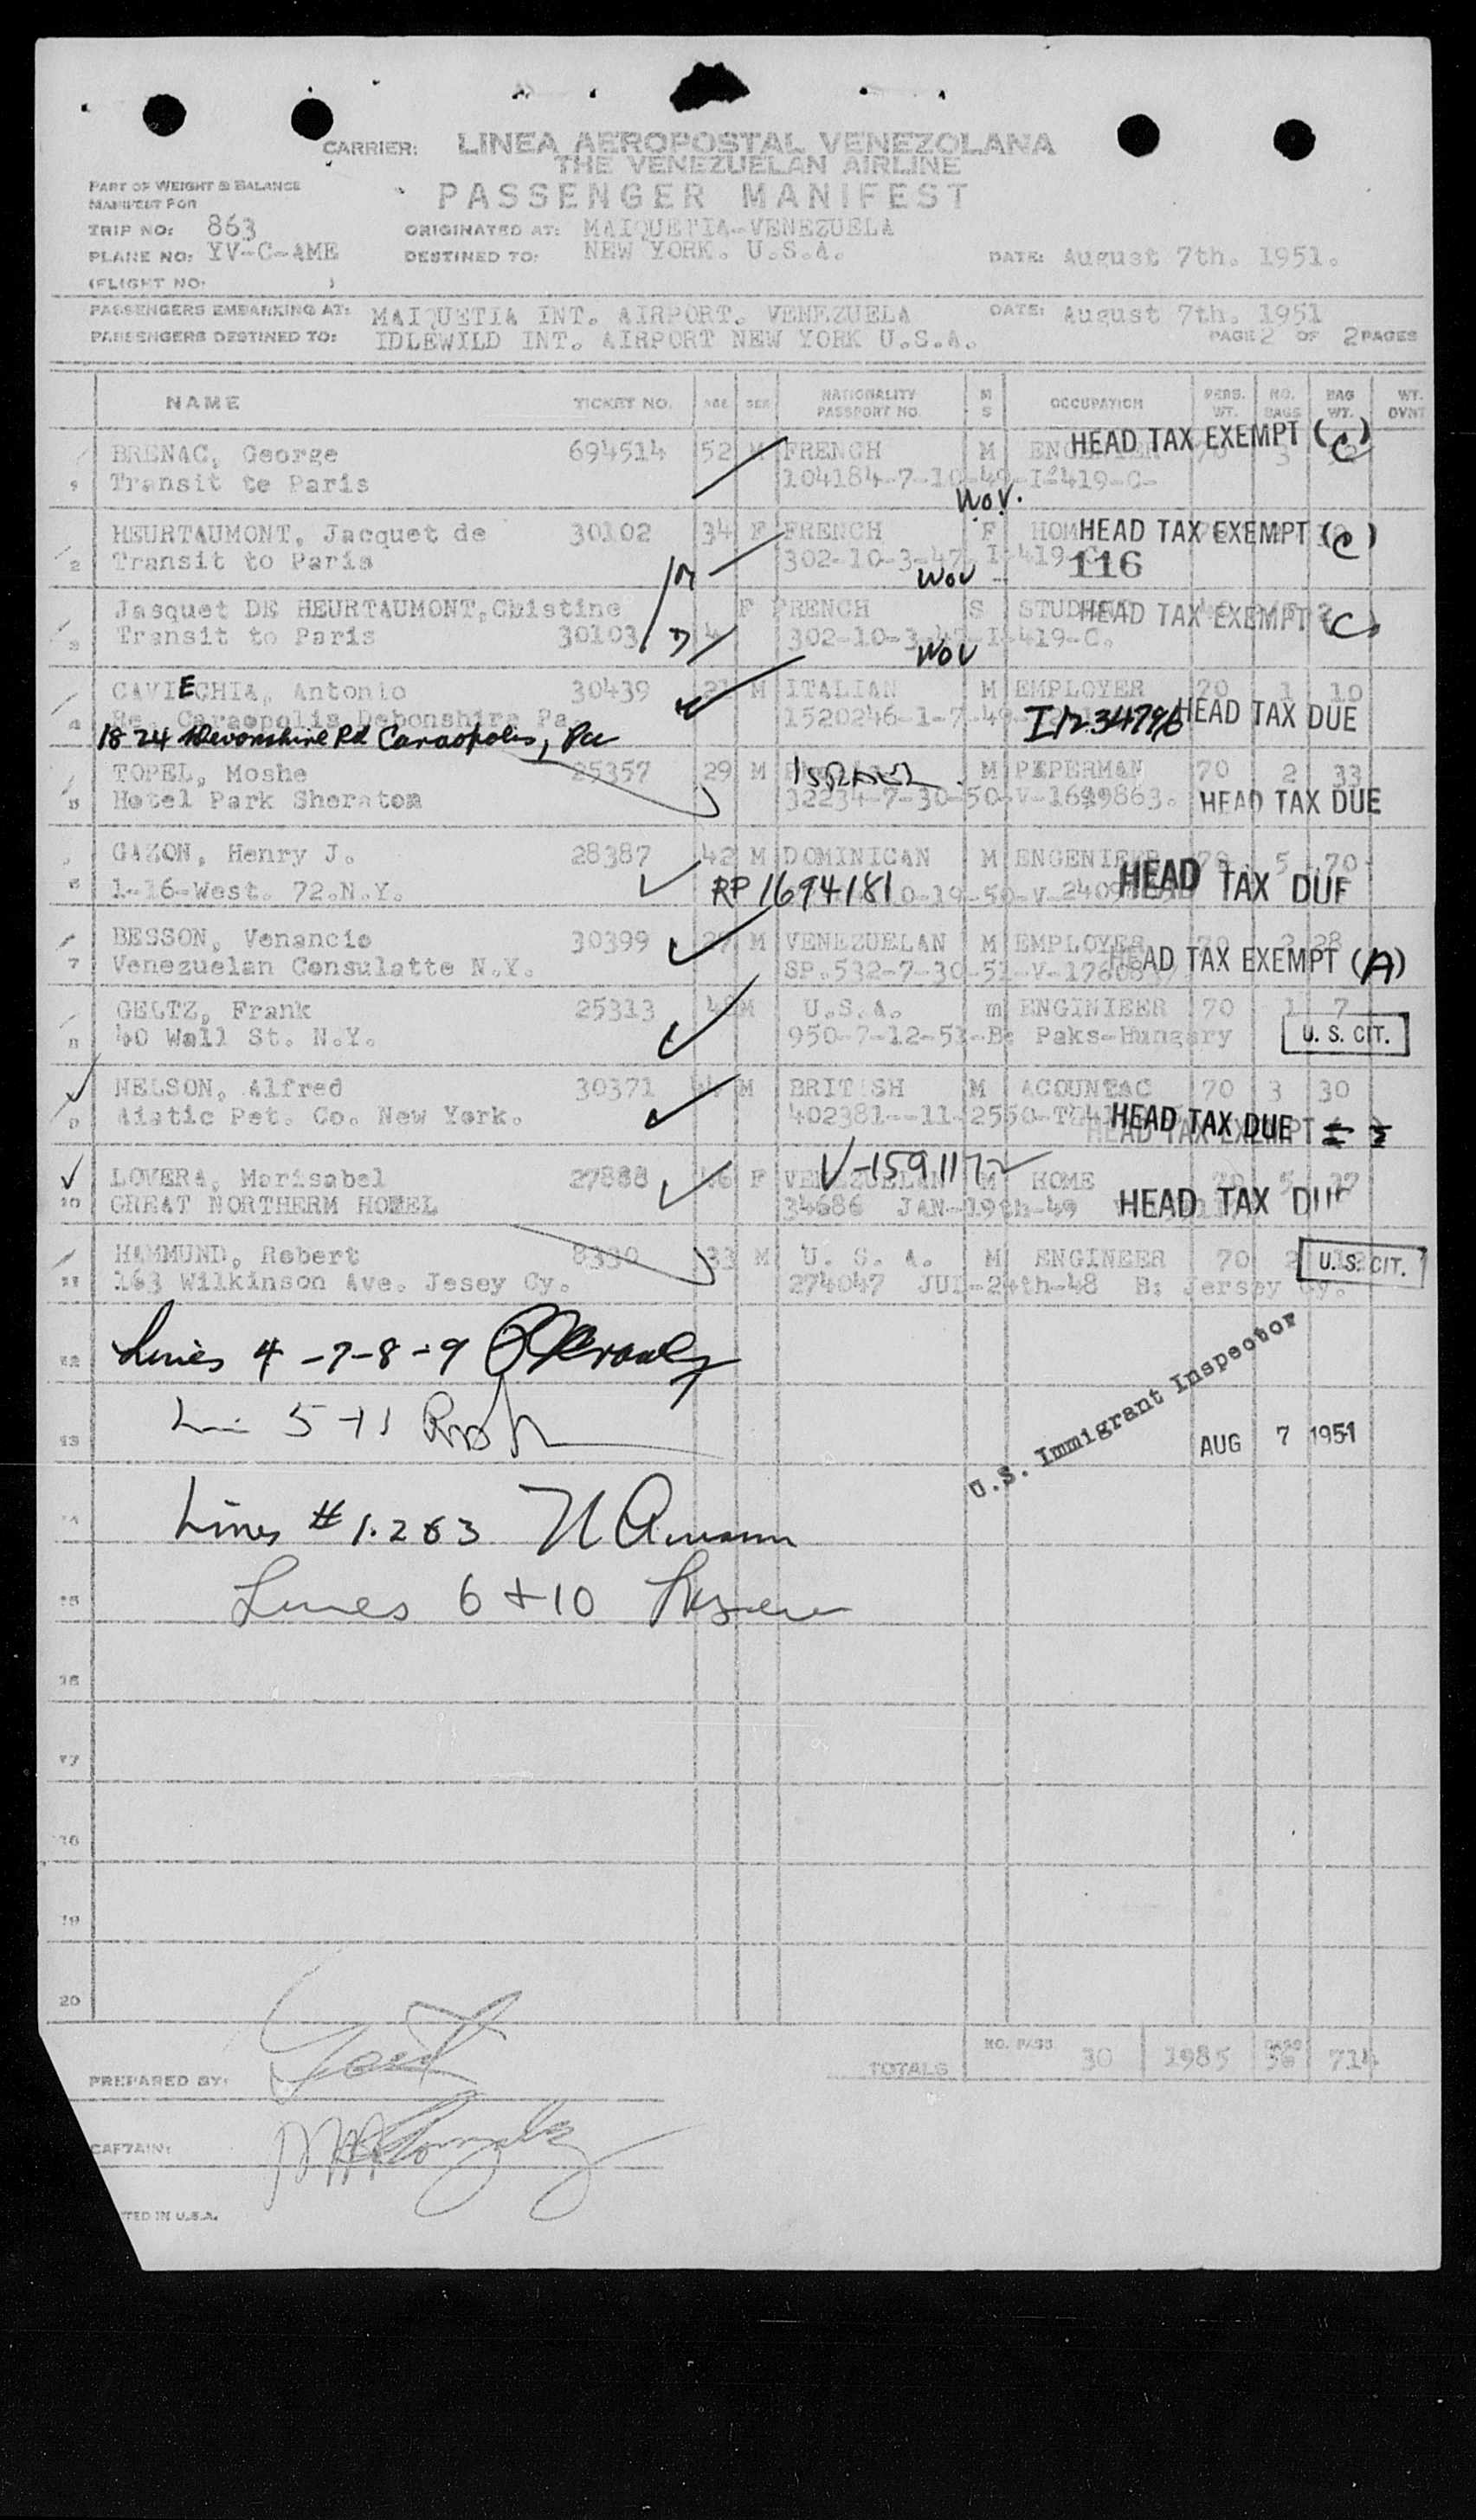 CARRIER: LINEA AEROPOSTAL VENEZOLANA
THE VENEZUELAN AIRLINE
PART OF WEIGHT & BALANCE
MANIFEST FOR
PASSENGER MANIFEST
TRIP NO: 863 ORIGINATED AT: MAIQUETIA-VENEZUELA
PLANE NO: YV-C-AME DESTINED TO: NEW YORK. U.S.A. DATE: August 7th. 1951.
(FLIGHT NO. )
PASSENGERS EMBARKING AT: MAIQUETIA INT. AIRPORT. VENEZUELA DATE: August 7th. 1951
PASSENGERS DESTINED TO: IDLEWILD INT. AIRPORT NEW YORK U.S.A. PAGE 2 OF 2 PAGES
NAME TICKET NO. AGE SEX NATIONALITY PASSPORT NO. M S OCCUPATION PERS. WT. NO. BAGS BAG WT. WT. OVNT
BRENAC, George 694514 52 M FRENCH M HEAD TAX EXEMPT (C)
1 Transit te Paris 104184-7-10-49-I-419-C-
WOV.
HEURTAUMONT, Jacquet de 30102 34 F FRENCH F HOM HEAD TAX EXEMPT (C)
2 Transit to Paris 302-10-3-47 I-419-C 116
WOV
Jasquet DE HEURTAUMONT, Chistine F FRENCH S HEAD TAX EXEMPT (C)
3 Transit to Paris 30103 4 302-10-3-47-I-419-C.
WOV
CAVIECHIA, Antonio 30439 21 M ITALIAN M EMPLOYER 70 1 10
4 Re. Caraopolis Debonshire Pa 1520246-1-7-49 HEAD TAX DUE
1824 Devonshire Rd Caraopolis, Pa
TOPEL, Moshe 25357 29 M ISRAEL M PEPERMAN 70 2 33
5 Hotel Park Sheraton 32234-7-30-50-V-1699863. HEAD TAX DUE
GAZON, Henry J. 28387 42 M DOMINICAN M ENGENIEER 70 5 70
6 1-16-West. 72.N.Y. RP 1694181 0-19-50-V-2409 HEAD TAX DUE
BESSON, Venancio 30399 27 M VENEZUELAN M EMPLOYER 70 2 28
7 Venezuelan Consulatte N.Y. SP.532-7-30-51-V-17608 HEAD TAX EXEMPT (A)
GELTZ, Frank 25313 48 M U.S.A. m ENGINIEER 70 1 7
8 40 Wall St. N.Y. 950-7-12-51-B: Paks-Hungary U. S. CIT.
NELSON, Alfred 30371 M BRITISH M ACOUNTAC 70 3 30
9 Aistic Pet. Co. New York. 402381--11-2550- HEAD TAX DUE
V-1591172
LOVERA, Marisabel 27888 46 F VENEZUELAN M HOME 70 5 37
10 GREAT NORTHERM HOTEL 34686 JAN-19th-49 HEAD TAX DUE
HAMMUND, Robert 8330 33 M U. S. A. M ENGINEER 70 2
11 163 Wilkinson Ave. Jesey Cy. 274047 JUL-24th-48 B: Jersey Cy. U. S. CIT.
12 Lines 4-7-8-9
U.S. Immigrant Inspector
13 5 + 11 AUG 7 1951
14 Lines # 1.2&3
15 Lines 6 + 10
16
17
18
19
20
TOTALS NO. PASS 30 1985 BAGS 36 714
PREPARED BY:
CAPTAIN:
TED IN U.S.A.